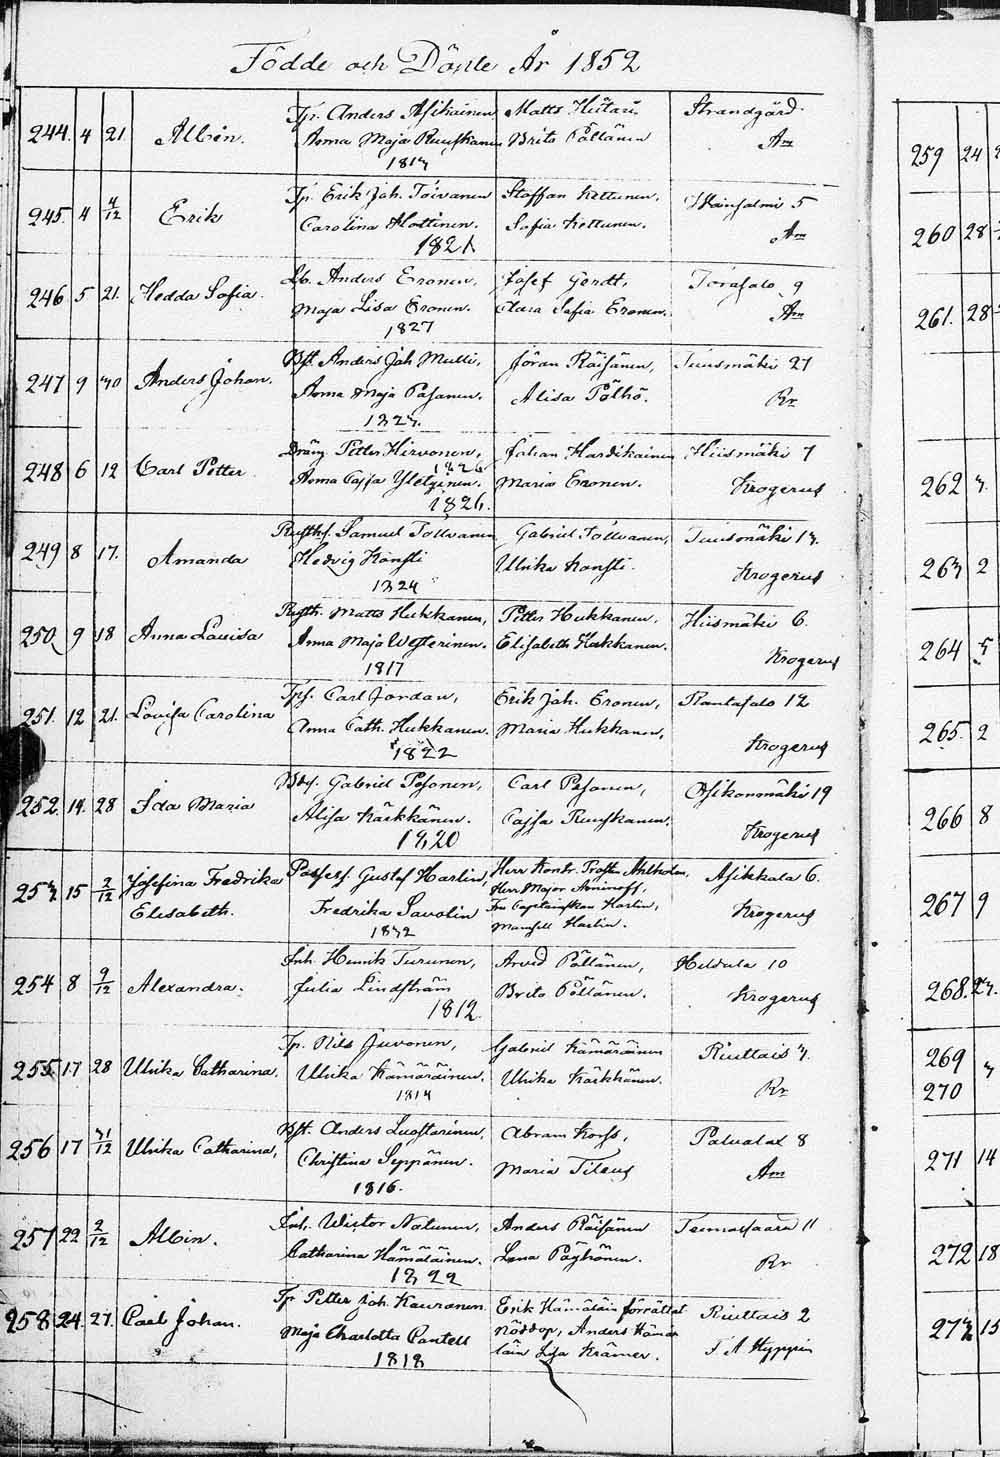 Födde och Döpte År 1852
244. 4 21 Albin. Tp. Anders Asikainen Matts Hutari Strandgård.
Anna Maja Ruuskanen Brita Pöllänen Am
1813
245. 4 4/12 Erik Tp. Erik Joh. Toivanen Staffan Kettunen.
Carolina Hottinen. Sofia Kettunen. Am
1821
246 5 21. Hedda Sofia. Anders Eronen, Josef Gerdt, 9
Maja Lisa Eronen. Clara Sofia Eronen. Am
1827
247 9 30 Anders Johan. Bst. Anders Joh. Mulli, Jöran Räisänen, Tuusmäki 27
Anna Maja Pasanen. Alisa Pölhö. Rr
1823.
248 6 12 Carl Petter Dräng Petter Hirvonen, Johan Hardikainen Hiismäki 7
1826
Anna Cajsa Maria Eronen. Krogerus
1826.
249 8 17. Amanda Rusth. Samuel Tollvanen Gabriel Tollvanen, Tuusmäki 13.
Hedvig Konsti Ulrika Konsti. Krogerus
1824
250 9 18 Anna Lovisa Rusth. Matts Hukkanen, Petter Hukkanen, Hiismäki 6.
Anna Maja Westerinen. Elisabeth Hukkanen. Krogerus
1817
251. 12 21. Lovisa Carolina Carl Jordan, Erik Joh. Eronen, Rantasalo 12
Anna Cath. Hukkanen. Maria Hukkanen. Krogerus
1822
252. 14. 28 Ida Maria Gabriel Pesonen, Carl Pesonen, Asikonmäki 19
Alisa Kärkkänen. Cajsa Ruuskanen. Krogerus
1820
253 15 2/12 Josefina Fredrika Possess. Gustaf Harlin, Herr Kontr. Prosten Ahlholm, Asikkala 6.
Elisabeth. Herr Major Aminoff,
Fredrika Savolin Fru Harlin, Krogerus
1832 Mamsell Harlin.
254 8 9/12 Alexandra. Inh. Henrik Turunen, Arvid Pöllänen, Heldula 10
Julia Lindström Brita Pöllänen. Krogerus
1812.
255. 17 28 Ulrika Catharina. Tp. Nils Juvonen, Gabriel Kämäräinen Riuttais 3.
Ulrika Kämäräinen. Ulrika Kärkkänen. Rr
1814
256 17 31/12 Ulrika Catharina, Bst. Anders Luostarinen, Abram Korss, Paluolax 8
Christina Seppänen. Maria Tileus Am
1816.
257 22 2/12 Albin. Inh. Wictor Natunen, Anders Räisänen 11
Catharina Hämäläinen. Lena Pöyhönen. Rr
1822
258 24. 27. Carl Johan. Tp Petter Joh. Kauranen Erik Hämäläin förrättat Riuttais 2
Maja Charlotta Cantell nöddop, Anders Hämä
läin Lisa Krämer. F. A Hyppén
1818
259 24
260 28
261. 28
262 3.
263 2
264 5
265. 2
266 8
267 9
268. 23.
269 3
270
271 14
272 18
273 15